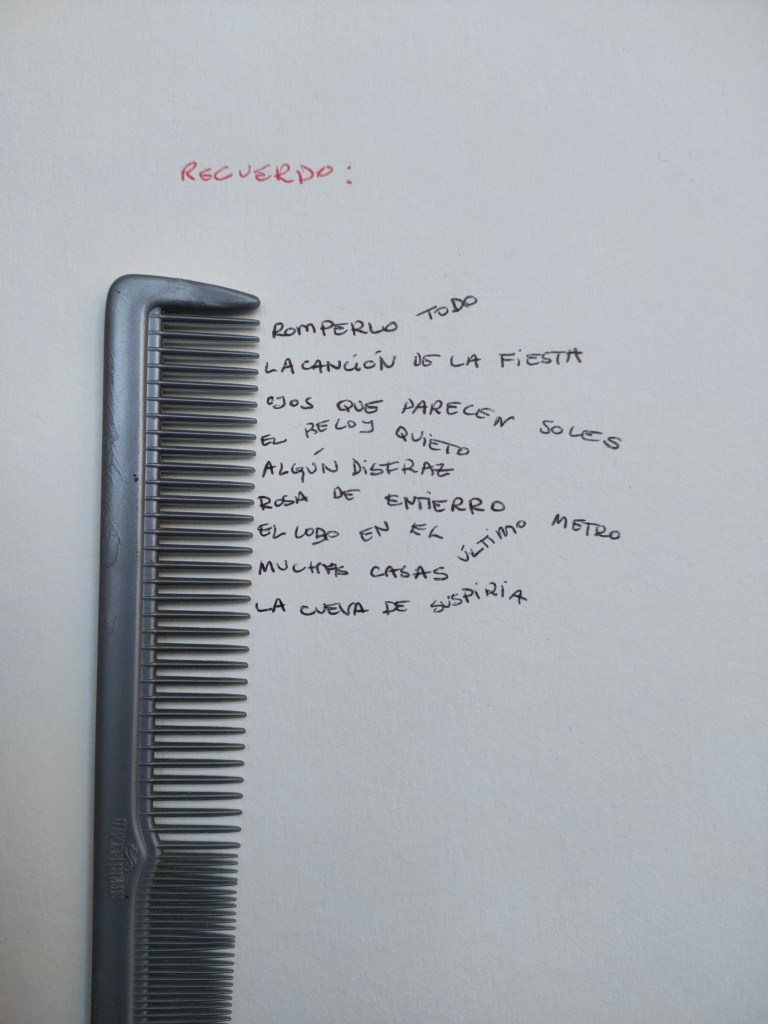 RECUERDO:
ROMPERLO TODO
LA CANCIÓN DE LA FIESTA
OJOS QUE PARECEN SOLES
EL RELOJ QUIETO
ALGÚN DISFRAZ
ROSA DE ENTIERRO
EL LOBO EN EL ÚLTIMO METRO
MUCHAS CASAS
LA CUEVA DE SUSPIRIA